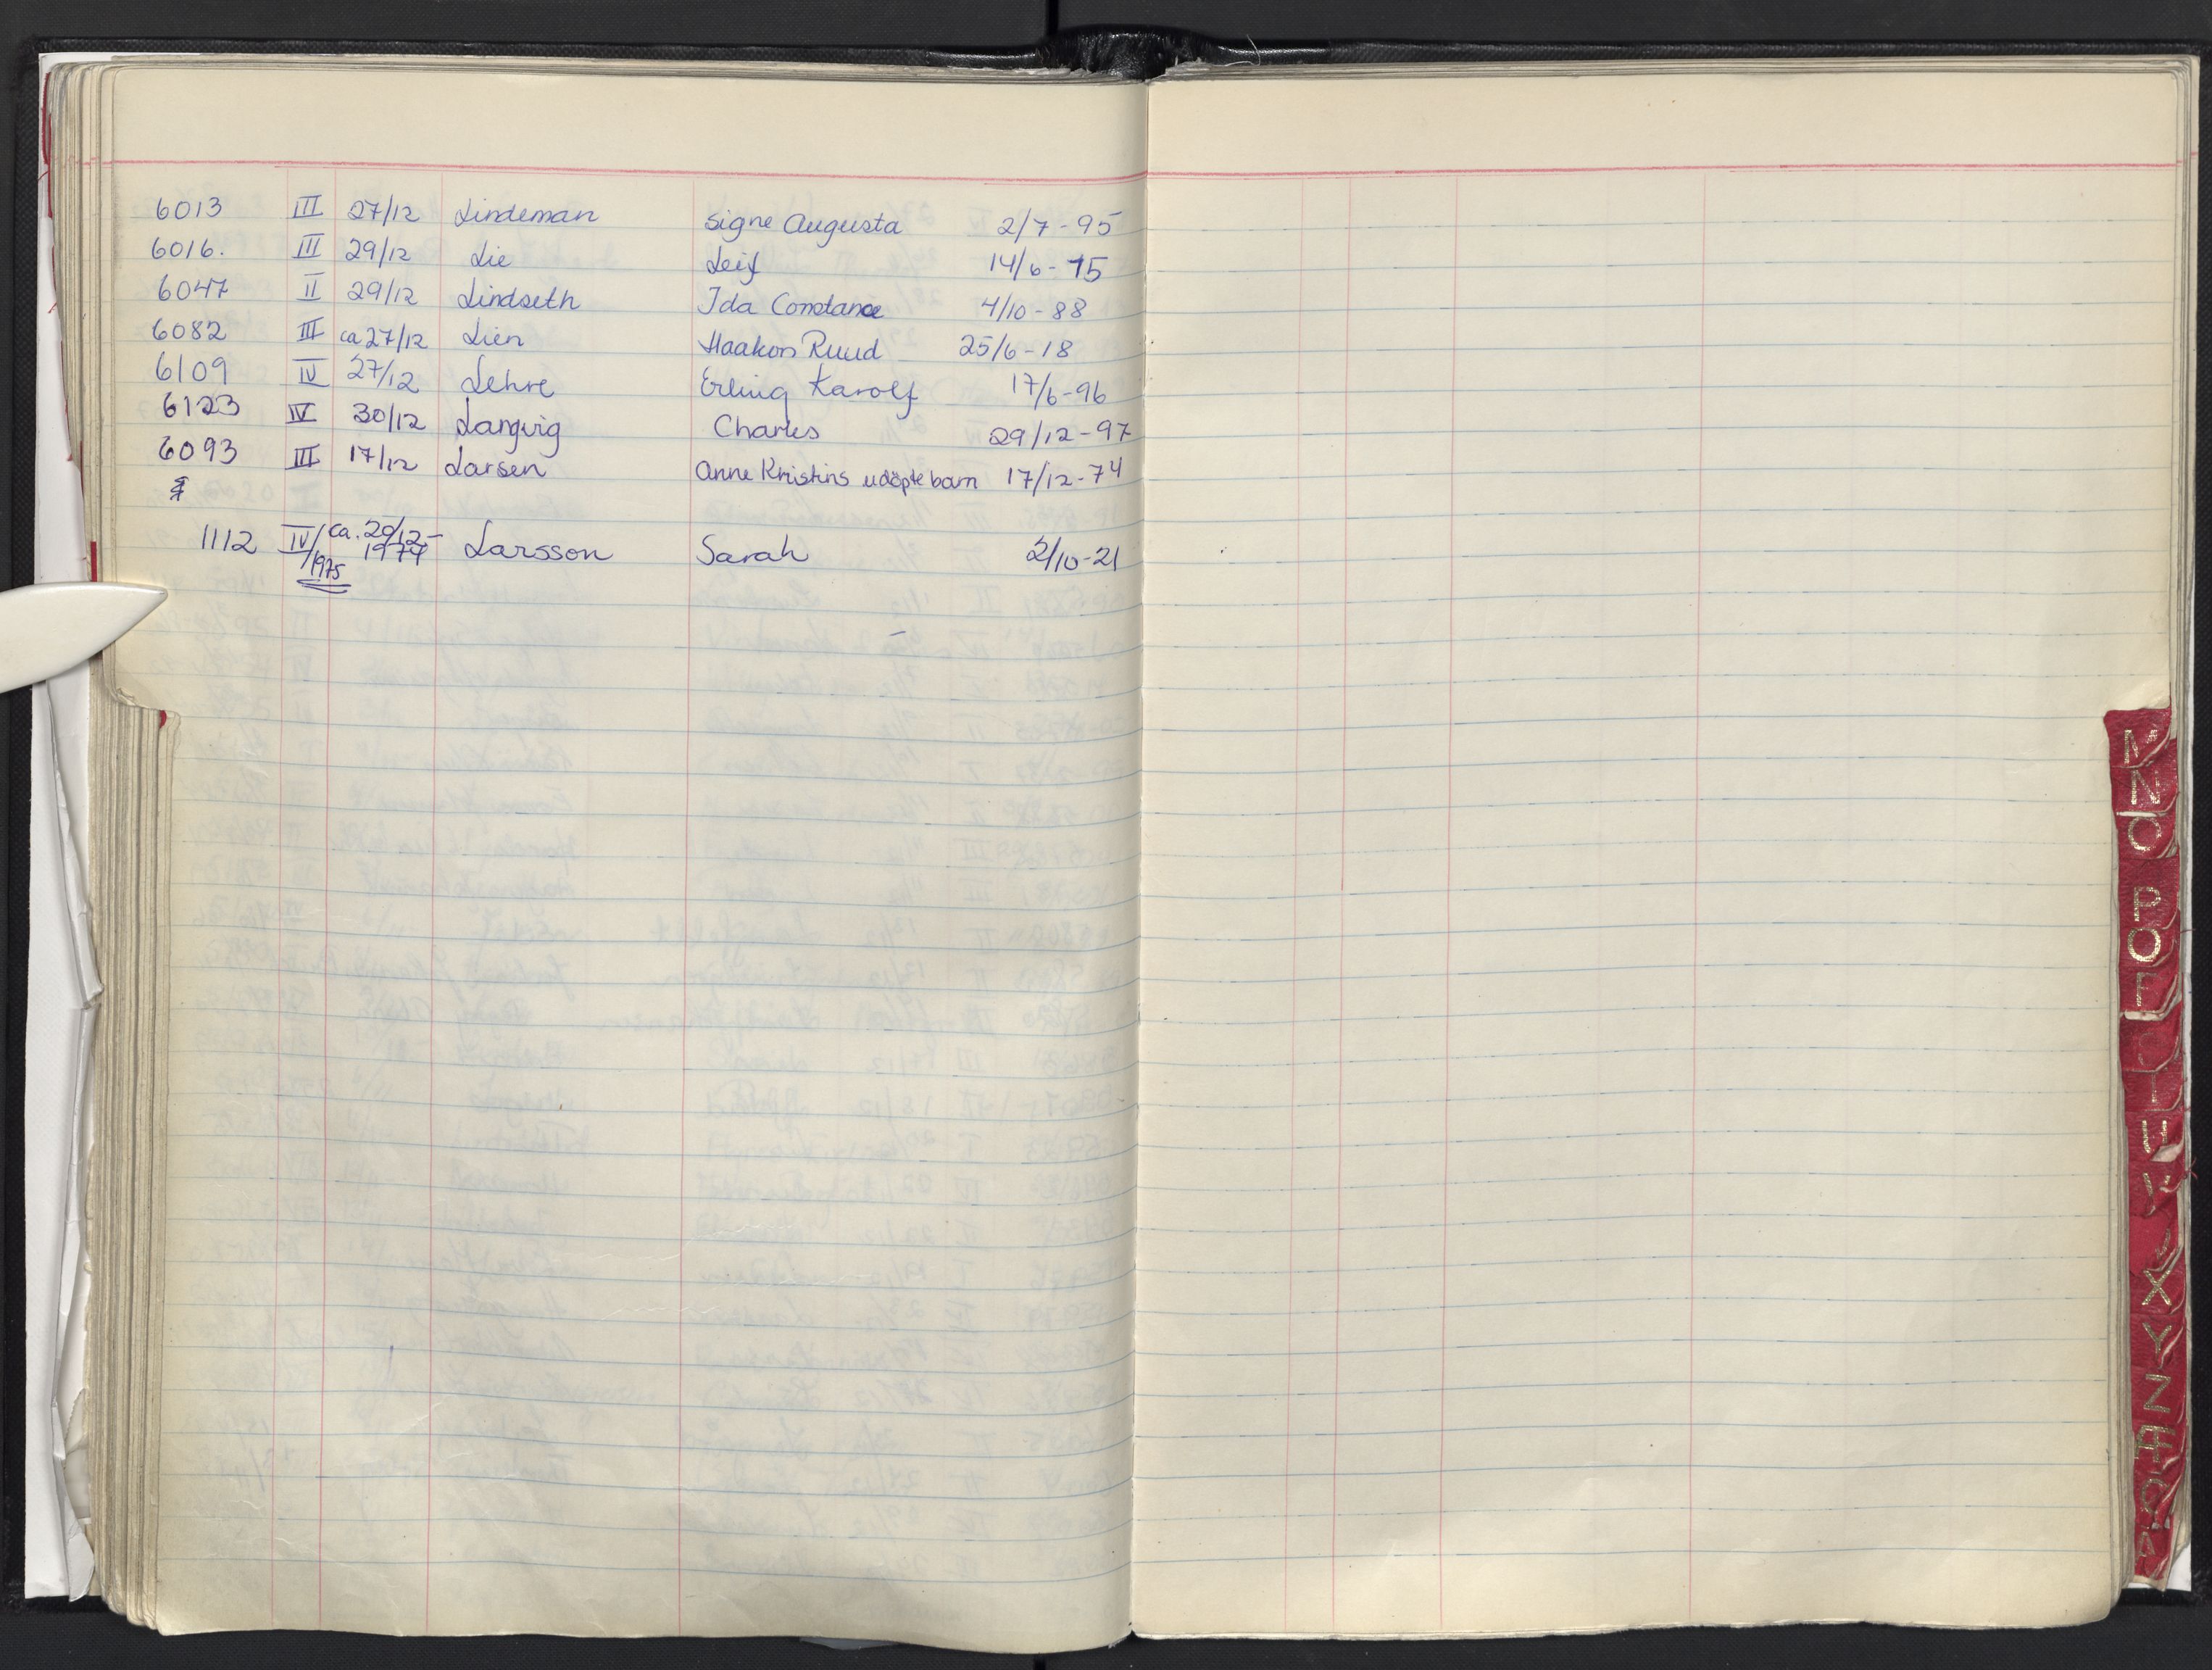 6013 III 27/12 Lindeman Signe Augusta 2/7-95
6016. III 29/12 Lie Leif 14/6-15
6047 II 29/12 Lindseth Ida Constance 4/10-88
6082 III ca 27/12 Lien Haakon Ruud 25/6-18
6109 IV 27/12 Lehre Erling Karolf 17/6-96
6123 IV 30/12 Langvig Charles 29/12-97
6093 III 17/12 Larsen Anne Kristins udöpte barn 17/12-74
1112 IV/1975 ca. 20/12-1974 Larsson Sarah 2/10-21
M
N
O
P
Q
U
X
Y
Z